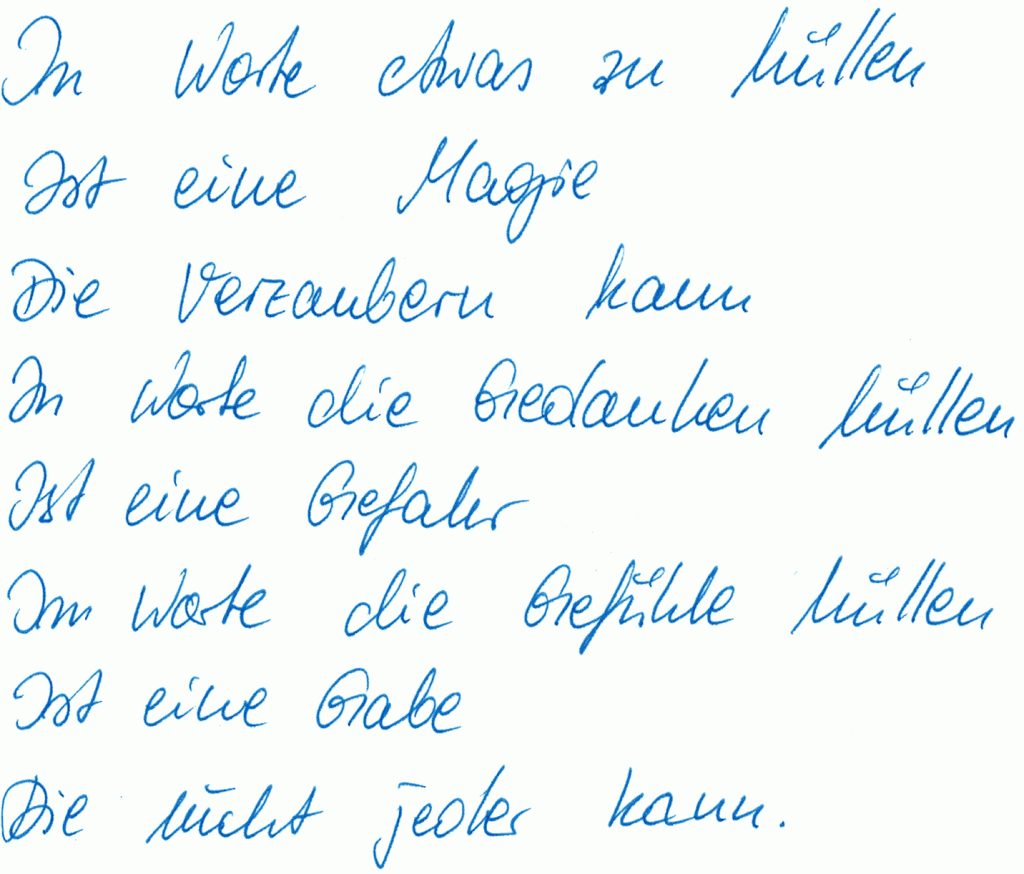 In Worte etwas zu hüllen
Ist eine Magie
Die Verzaubern kann
In Worte die Gedanken hüllen
Ist eine Gefahr
Im Worte die Gefühle hüllen
Ist eine Gabe
Die nicht jeder kann.